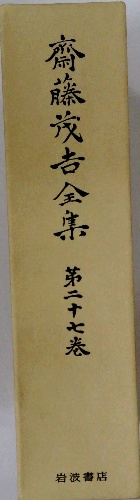 齋藤茂吉全集
第二十七巻
岩波書店